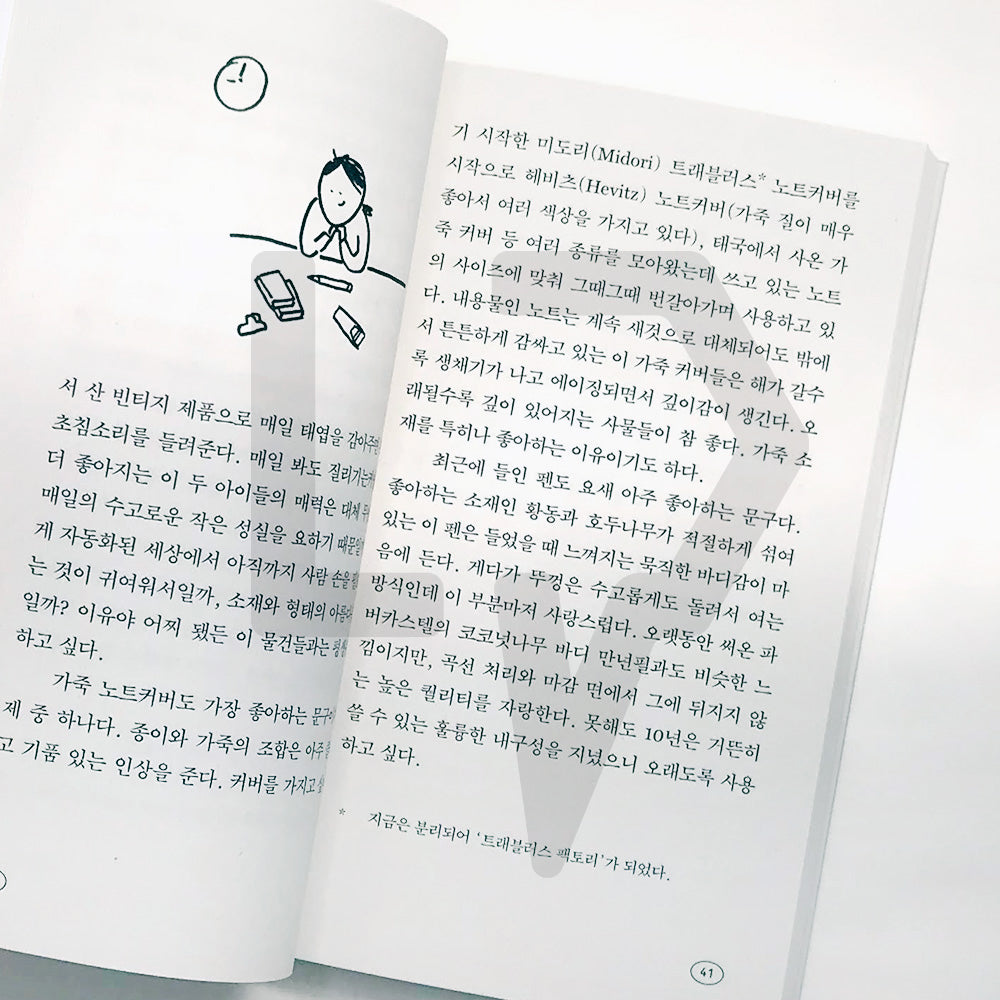 서 산 빈티지 제품으로 매일 태엽을 감아주면
초침소리를 들려준다. 매일 봐도 질리기는커녕
더 좋아지는 이 두 아이들의 매력은 대체
매일의 수고로운 작은 성실을 요하기 때문일까
게 자동화된 세상에서 아직까지 사람 손을
는 것이 귀여워서일까, 소재와 형태의
일까? 이유야 어찌 됐든 이 물건들과는
하고 싶다.
가죽 노트커버도 가장 좋아하는
제 중 하나다. 종이와 가죽의 조합은 아주
고 기품 있는 인상을 준다. 커버를 가지고
기 시작한 미도리(Midori) 트래블러스* 노트커버를
시작으로 헤비츠(Hevitz) 노트커버(가죽 질이 매우
좋아서 여러 색상을 가지고 있다), 태국에서 사온 가
죽 커버 등 여러 종류를 모아왔는데 쓰고 있는 노트
의 사이즈에 맞춰 그때그때 번갈아가며 사용하고 있
다. 내용물인 노트는 계속 새것으로 대체되어도 밖에
서 튼튼하게 감싸고 있는 이 가죽 커버들은 해가 갈수
록 생채기가 나고 에이징되면서 깊이감이 생긴다. 오
래될수록 깊이 있어지는 사물들이 참 좋다. 가죽 소
재를 특히나 좋아하는 이유이기도 하다.
최근에 들인 펜도 요새 아주 좋아하는 문구다.
좋아하는 소재인 황동과 호두나무가 적절하게 섞여
있는 이 펜은 들었을 때 느껴지는 묵직한 바디감이 마
음에 든다. 게다가 뚜껑은 수고롭게도 돌려서 여는
방식인데 이 부분마저 사랑스럽다. 오랫동안 써온 파
버카스텔의 코코넛나무 바디 만년필과도 비슷한 느
낌이지만, 곡선 처리와 마감 면에서 그에 뒤지지 않
는 높은 퀄리티를 자랑한다. 못해도 10년은 거뜬히
쓸 수 있는 훌륭한 내구성을 지녔으니 오래도록 사용
하고 싶다.
* 지금은 분리되어 ‘트래블러스 팩토리’가 되었다.
41